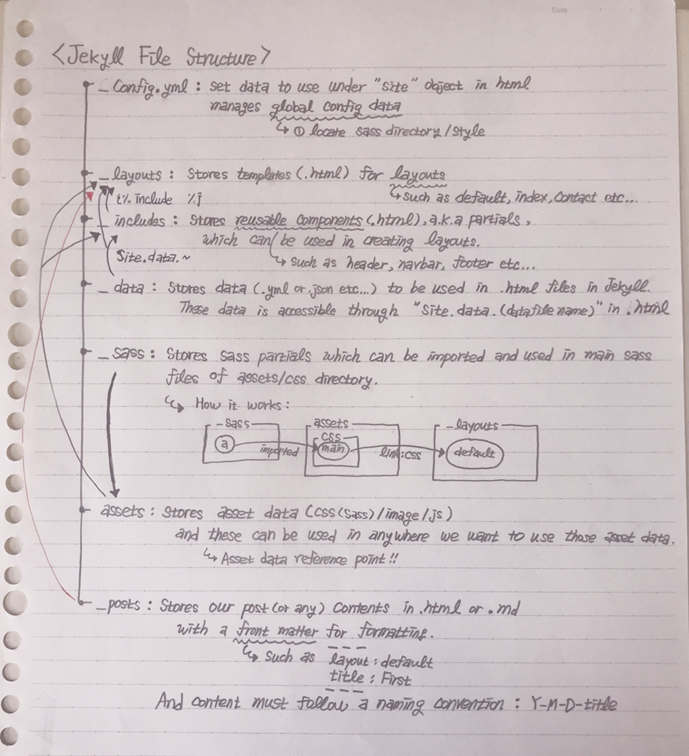 <Jekyll File Structure>
_Config.yml : set data to use under "site" object in html
manages global config data
↳ ① locate sass directory/style
_layouts : Stores templates (.html) for layouts
↳ such as default, index, contact etc...
{% include %}
_includes : Stores reusable components (.html), a.k.a partials,
which can be used in creating layouts.
Site.data.~
↳ such as header, navbar, footer etc...
_data : Stores data (.yml or .json etc...) to be used in .html files in Jekyll.
These data is accessible through "Site.data.(datafile name)" in .html
_sass : Stores sass partials which can be imported and used in main sass
files of assets/css directory.
↳ How it works :
_sass
assets
_layouts
css
a
imported
main
link:css
default
assets : Stores asset data (css(sass)/image/js)
and these can be used in anywhere we want to use those asset data.
↳ Asset data reference point!!
_posts : Stores our post (or any) contents in .html or .md
with a front matter for formatting.
↳ such as
---
layout : default
title : First
---
And content must follow a naming convention : Y-M-D-title